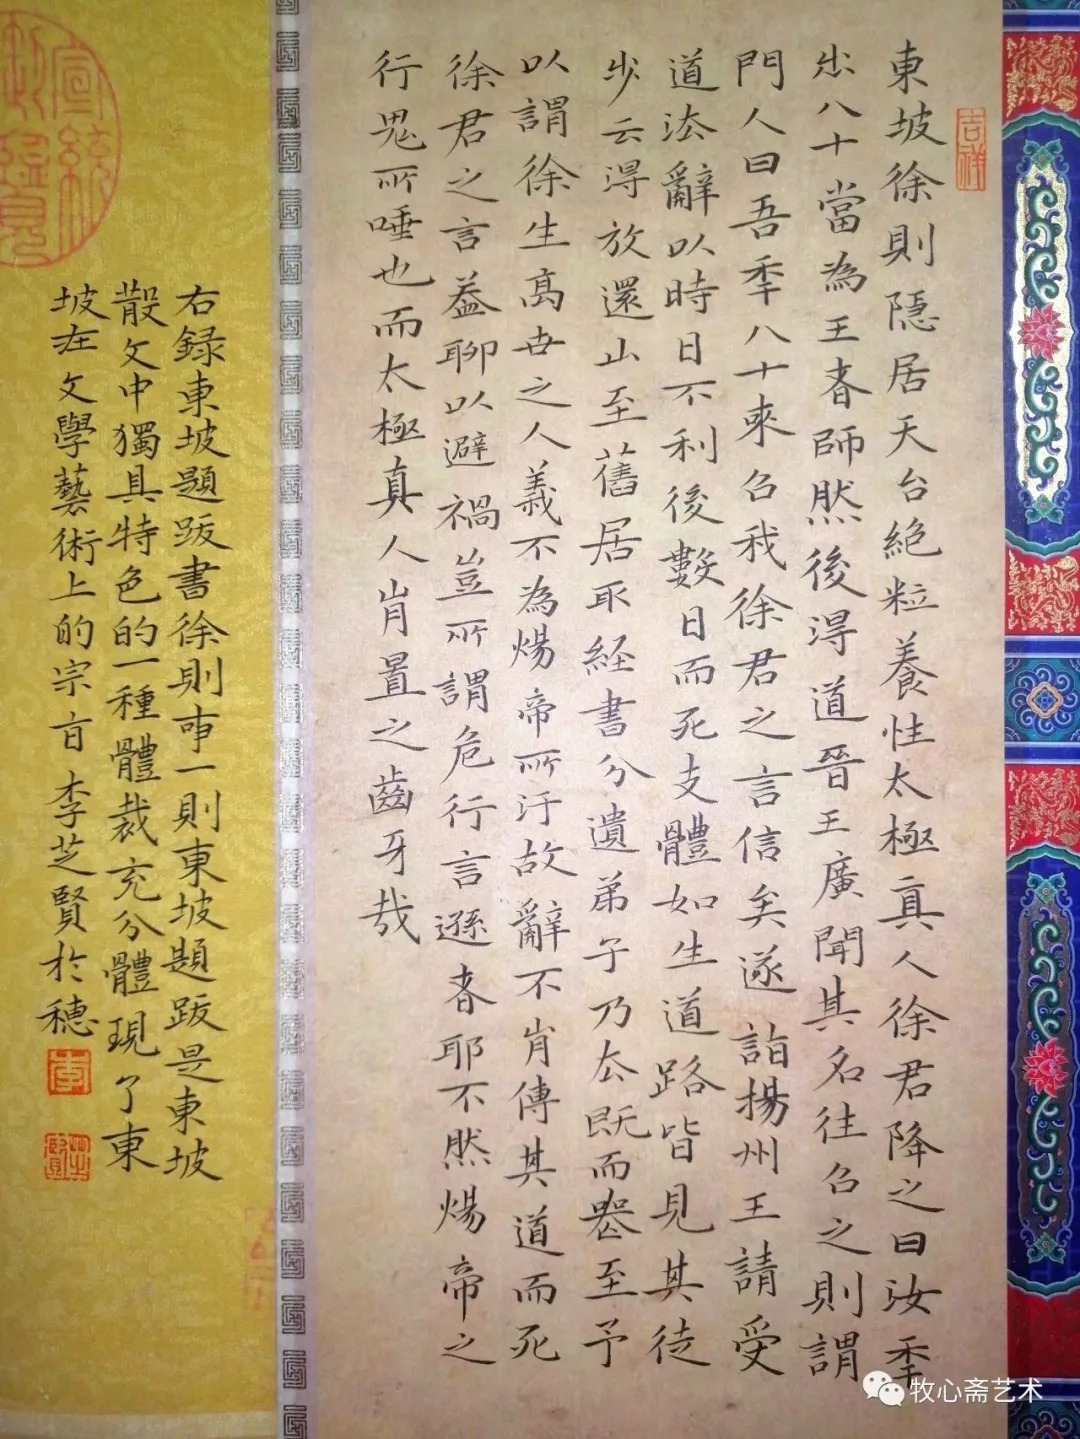 吉祥
東坡徐則隱居天台絕粒養性太極真人徐君降之曰汝秊
出八十當為王者師然後得道晉王廣聞其名往召之則謂
門人曰吾秊八十來召我徐君之言信矣遂詣揚州王請受
道法辭以時日不利後數日而死支體如生道路皆見其徒
步云得放還山至舊居取経書分遺弟子乃去既而喪至予
以謂徐生高世之人義不為煬帝所汙故辭不肯傳其道而死
徐君之言葢聊以避禍豈所謂危行言遜者耶不然煬帝之
行鬼所唾也而太極真人肯置之齒牙哉
右録東坡題跋書徐則事一則東坡題跋是東坡
散文中獨具特色的一種體裁充分體現了東
坡在文學藝術上的宗旨 李芝賢於穗
李
芝賢
宣統御覽
牧心斋艺术